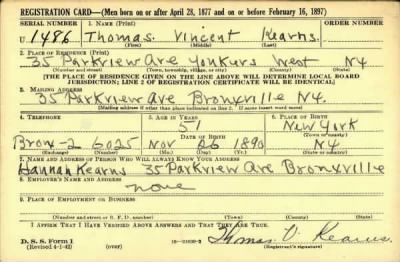 REGISTRATION CARD—(Men born on or after April 28, 1877 and on or before February 16, 1897)
SERIAL NUMBER 1. NAME (Print) ORDER NUMBER
U 1486 Thomas Vincent Kearns
(First) (Middle) (Last)
2. PLACE OF RESIDENCE (Print)
35 Parkview Ave Yonkers West NY
(Number and street) (Town, township, village, or city) (County) (State)
[THE PLACE OF RESIDENCE GIVEN ON THE LINE ABOVE WILL DETERMINE LOCAL BOARD
JURISDICTION; LINE 2 OF REGISTRATION CERTIFICATE WILL BE IDENTICAL]
3. MAILING ADDRESS
35 Parkview Ave Bronxville NY.
[Mailing address if other than place indicated on line 2. If same insert word same]
4. TELEPHONE 5. AGE IN YEARS 6. PLACE OF BIRTH
51 New York
DATE OF BIRTH (Town or county)
Bronx-2 6025 Nov 26 1890 NY
(Exchange) (Number) (Mo.) (Day) (Yr.) (State or country)
7. NAME AND ADDRESS OF PERSON WHO WILL ALWAYS KNOW YOUR ADDRESS
Hannah Kearns 35 Parkview Ave Bronxville
8. EMPLOYER'S NAME AND ADDRESS
none
9. PLACE OF EMPLOYMENT OR BUSINESS
(Number and street or R. F. D. number) (Town) (County) (State)
I AFFIRM THAT I HAVE VERIFIED ABOVE ANSWERS AND THAT THEY ARE TRUE.
D. S. S. Form 1
(Revised 4-1-42) (over) Thomas V. Kearns
(Registrant's signature)